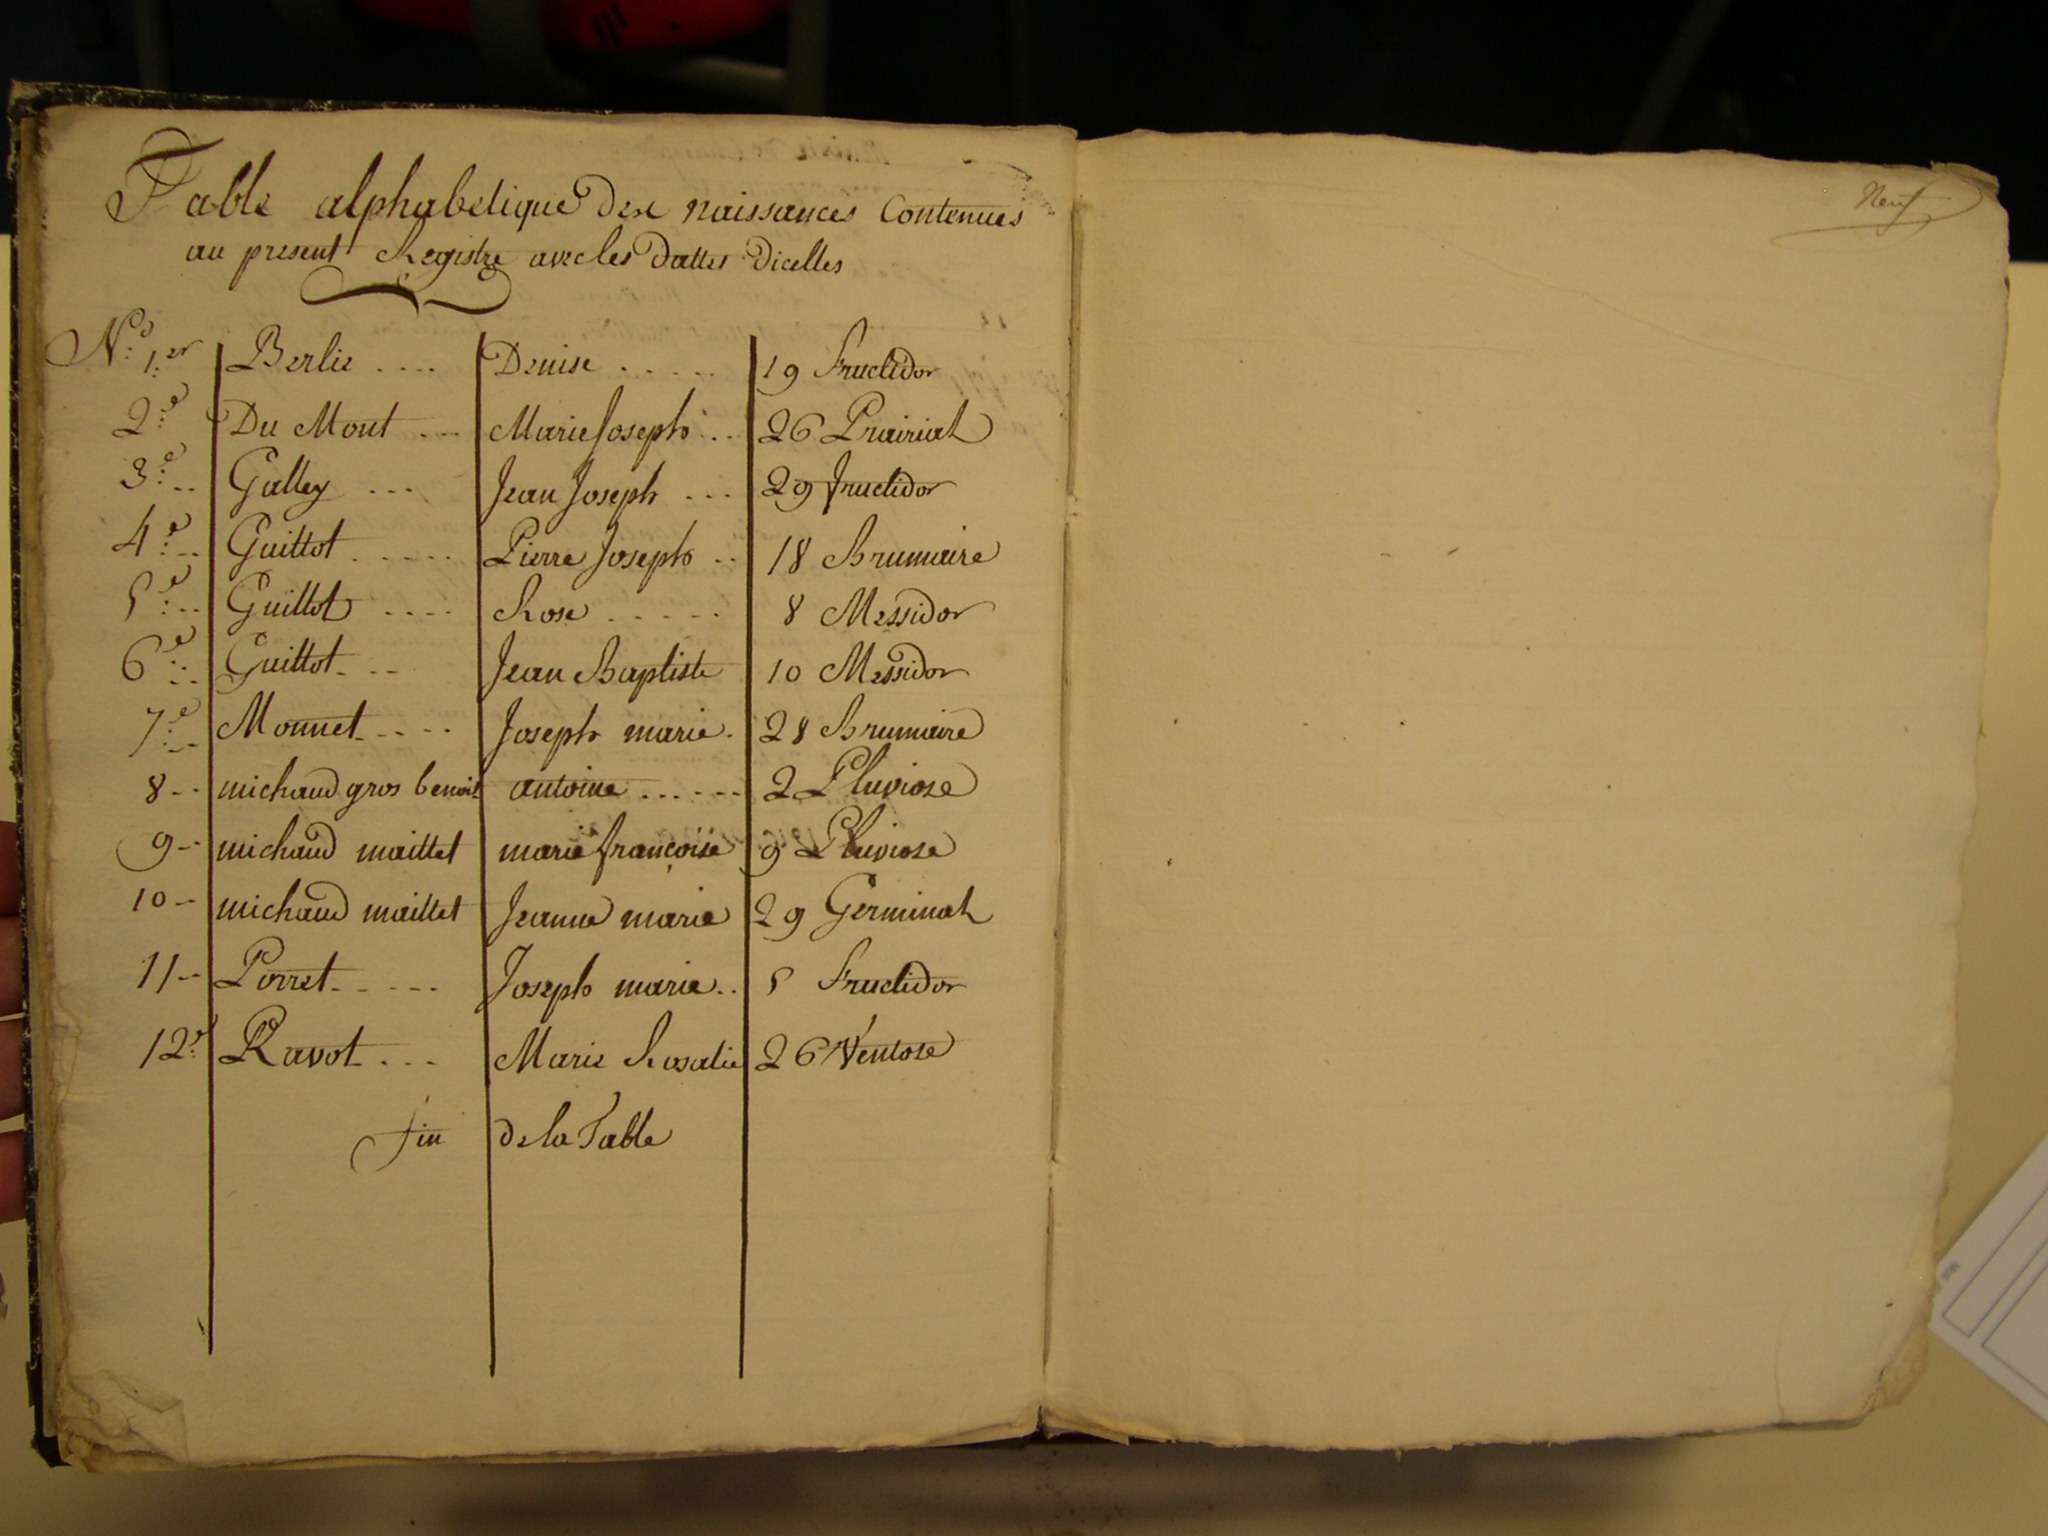 Table alphabetique des naissances Contenues
au present Registre avec les Dattes Dicelles
N.os 1.er Berlie .... Denise ..... 19 Fructidor
2.e Du Mont ... Marie Joseph .. 26 Prairial
3.e .. Galley ... Jean Joseph ... 29 fructidor
4.e .. Guittot ..... Pierre Joseph .. 18 Brumaire
5.e .. Guittot .... Rose ..... 8 Messidor
6.e .. Guittot ... Jean Baptiste 10 Messidor
7.e .. Monnet .... Joseph marie . 28 Brumaire
8 -- michaud gros benoit antoine ...... 2 Pluviose
9 -- michaud maittet marie françoise 9 Pluviose
10 -- michaud maittet Jeanne marie 29 Germinal
11 -- Porret ..... Joseph marie .. 5 Fructidor
12.e Ravot ... Marie Rosalie 26 Ventose
fin de la Table
Neuf